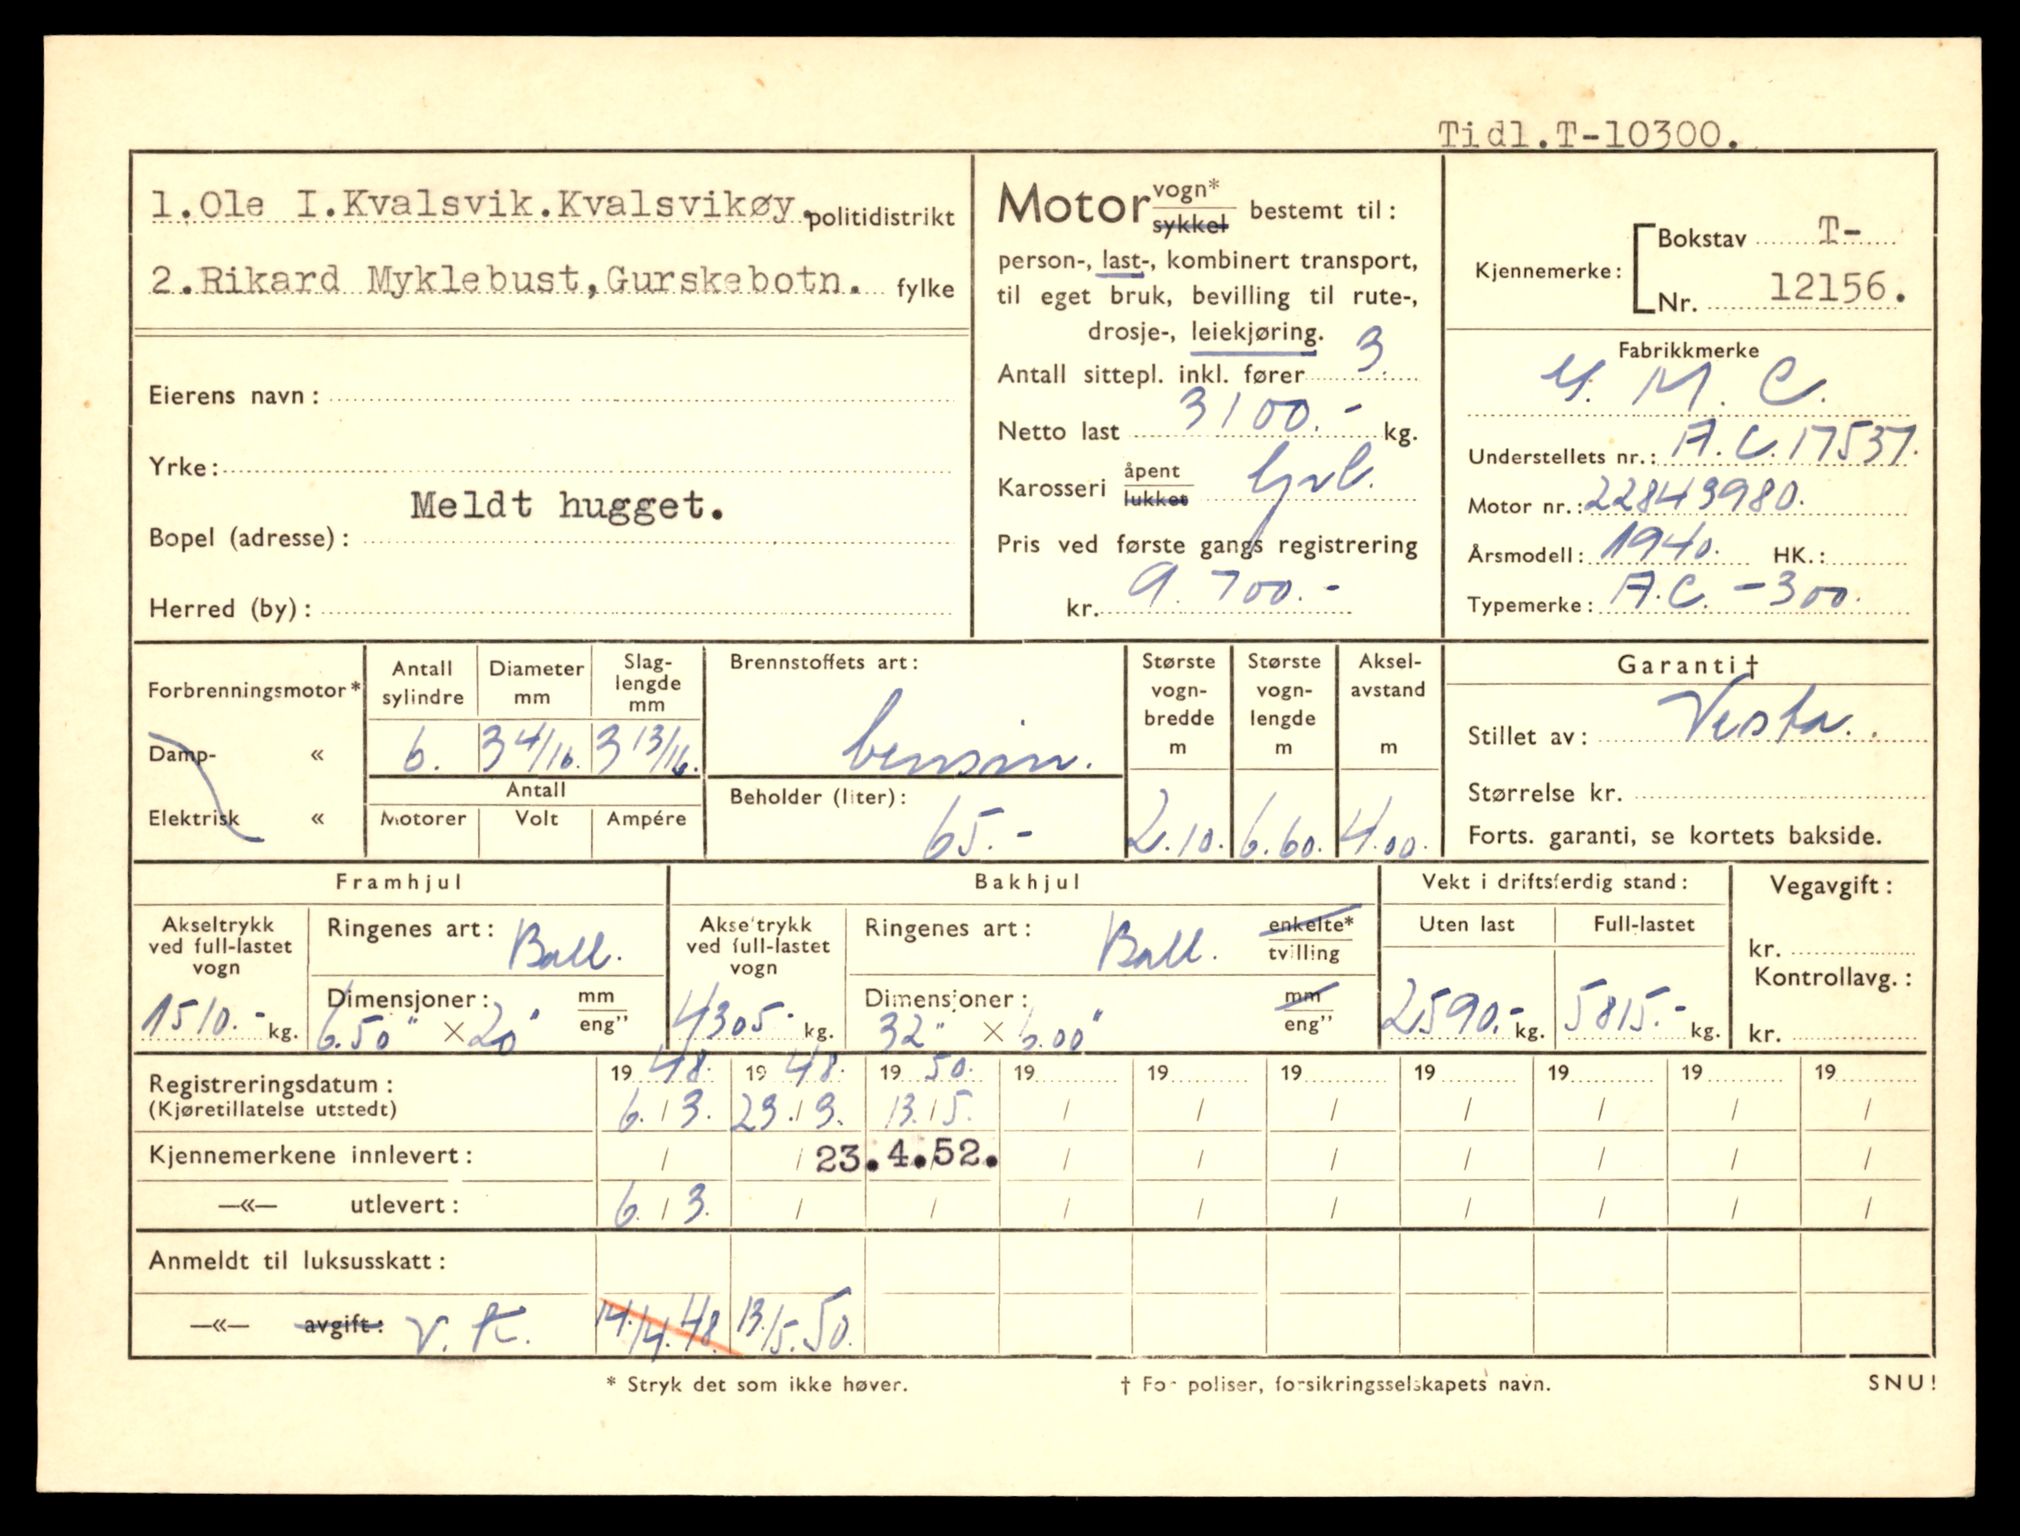 Tidl.T-10300.
1.Ole I.Kvalsvik.Kvalsvikøy. politidistrikt
2.Rikard Myklebust,Gurskebotn. fylke
Eierens navn:
Yrke:
Meldt hugget.
Bopel (adresse):
Herred (by):
Motor vogn* sykkel bestemt til:
person-, last-, kombinert transport,
til eget bruk, bevilling til rute-,
drosje-, leiekjøring.
Antall sittepl. inkl. fører 3.
Netto last 3100.- kg.
Karosseri åpent lukket
Pris ved første gangs registrering
kr. 9.700.-
Kjennemerke: Bokstav T-
Nr. 12156.
Fabrikkmerke
G. M. C.
Understellets nr.: A.C.17537.
Motor nr.: 22843980.
Årsmodell: 1940. HK.:
Typemerke: A.C. - 300.
Forbrenningsmotor*
Damp- «
Elektrisk «
Antall sylindre 6.
Diameter mm 3 4/16.
Slag- lengde mm 3 13/16.
Antall
Motorer Volt Ampére
Brennstoffets art:
bensin.
Beholder (liter):
65.-
Største vogn- bredde m 2.10.
Største vogn- lengde m 6.60.
Aksel- avstand m 4.00.
Garanti†
Stillet av: Vesta.
Størrelse kr.
Forts. garanti, se kortets bakside.
Framhjul
Akseltrykk ved full-lastet vogn
1510.- kg.
Ringenes art: Ball.
Dimensjoner: mm eng”
6.50" × 20"
Bakhjul
Akseltrykk ved full-lastet vogn
4305- kg.
Ringenes art: Ball. enkelte* tvilling
Dimensjoner: mm eng”
32" × 6.00"
Vekt i driftsferdig stand:
Uten last Full-lastet
2590.- kg. 5815.- kg.
Vegavgift:
kr.
Kontrollavg.:
kr.
Registreringsdatum: 19 48. 19 48. 19 50. 19 19 19 19 19 19 19
(Kjøretillatelse utstedt) 6./3. 23./3. 13./5. / / / / / / /
Kjennemerkene innlevert: / / 23.4.52. / / / / / / /
—«— utlevert: 6./3. / / / / / / / / /
Anmeldt til luksusskatt:
—«— avgift: V. K. 14./4.48. 13./5.50.
* Stryk det som ikke høver.
† For poliser, forsikringsselskapets navn.
SNU!